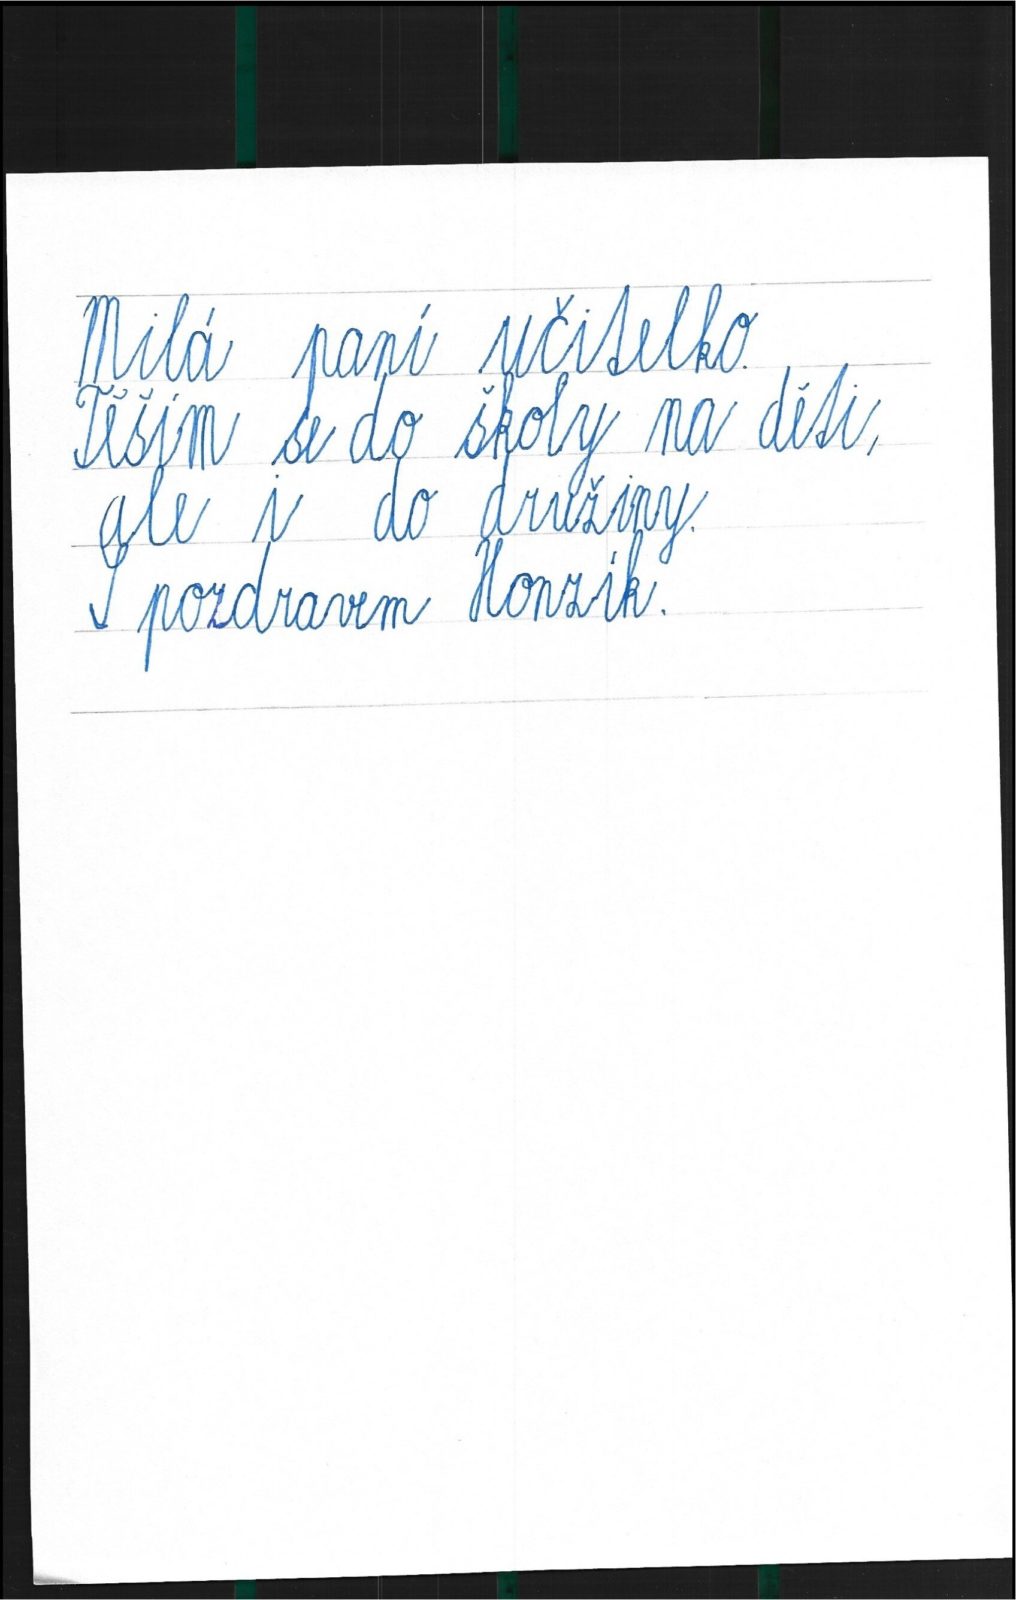 Milá paní učitelko.
Těším se do školy na děti,
ale i do družiny.
S pozdravem Honzík.